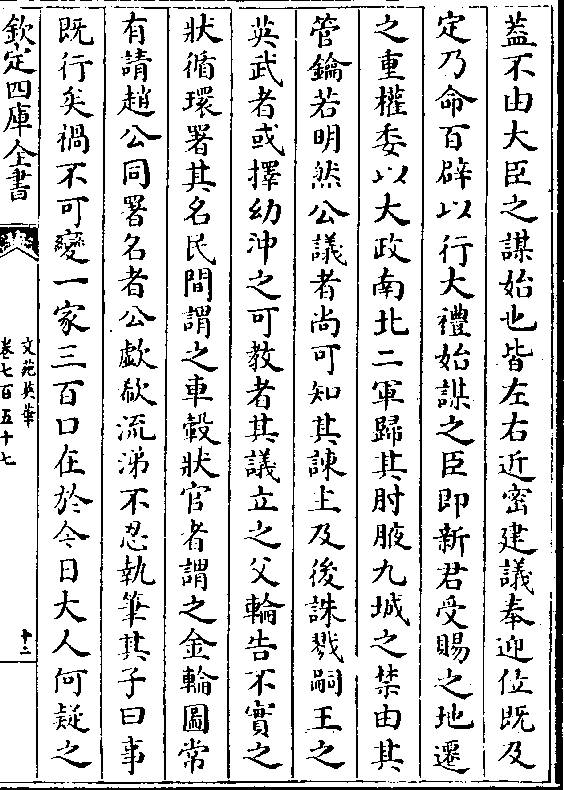 蓋不由大臣之謀始也皆左右近密建議奉迎位既及
定乃命百辟以行大禮始謀之臣即新君受賜之地遷
之重權委以大政南北二軍歸其肘腋九城之禁由其
管鑰若明然公議者尚可知其諫上及後誅戮嗣王之
英武者或擇幼沖之可教者其議立之父輪告不實之
狀循環署其名民間謂之車轂狀官者謂之金輪圖常
有請趙公同署名者公歔欷流涕不忍執筆其子曰事
既行矣禍不可變一家三百口在於今日大人何疑之
欽定四庫全書
文苑英華
卷七百五十七
十二